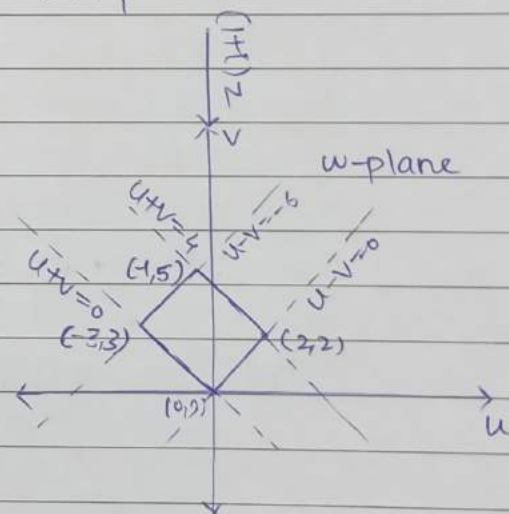 (1+i) z
v
w-plane
u+v=4
u-v=-6
u+v=0
(-1,5)
u-v=0
(-3,3)
(2,2)
(0,0)
u